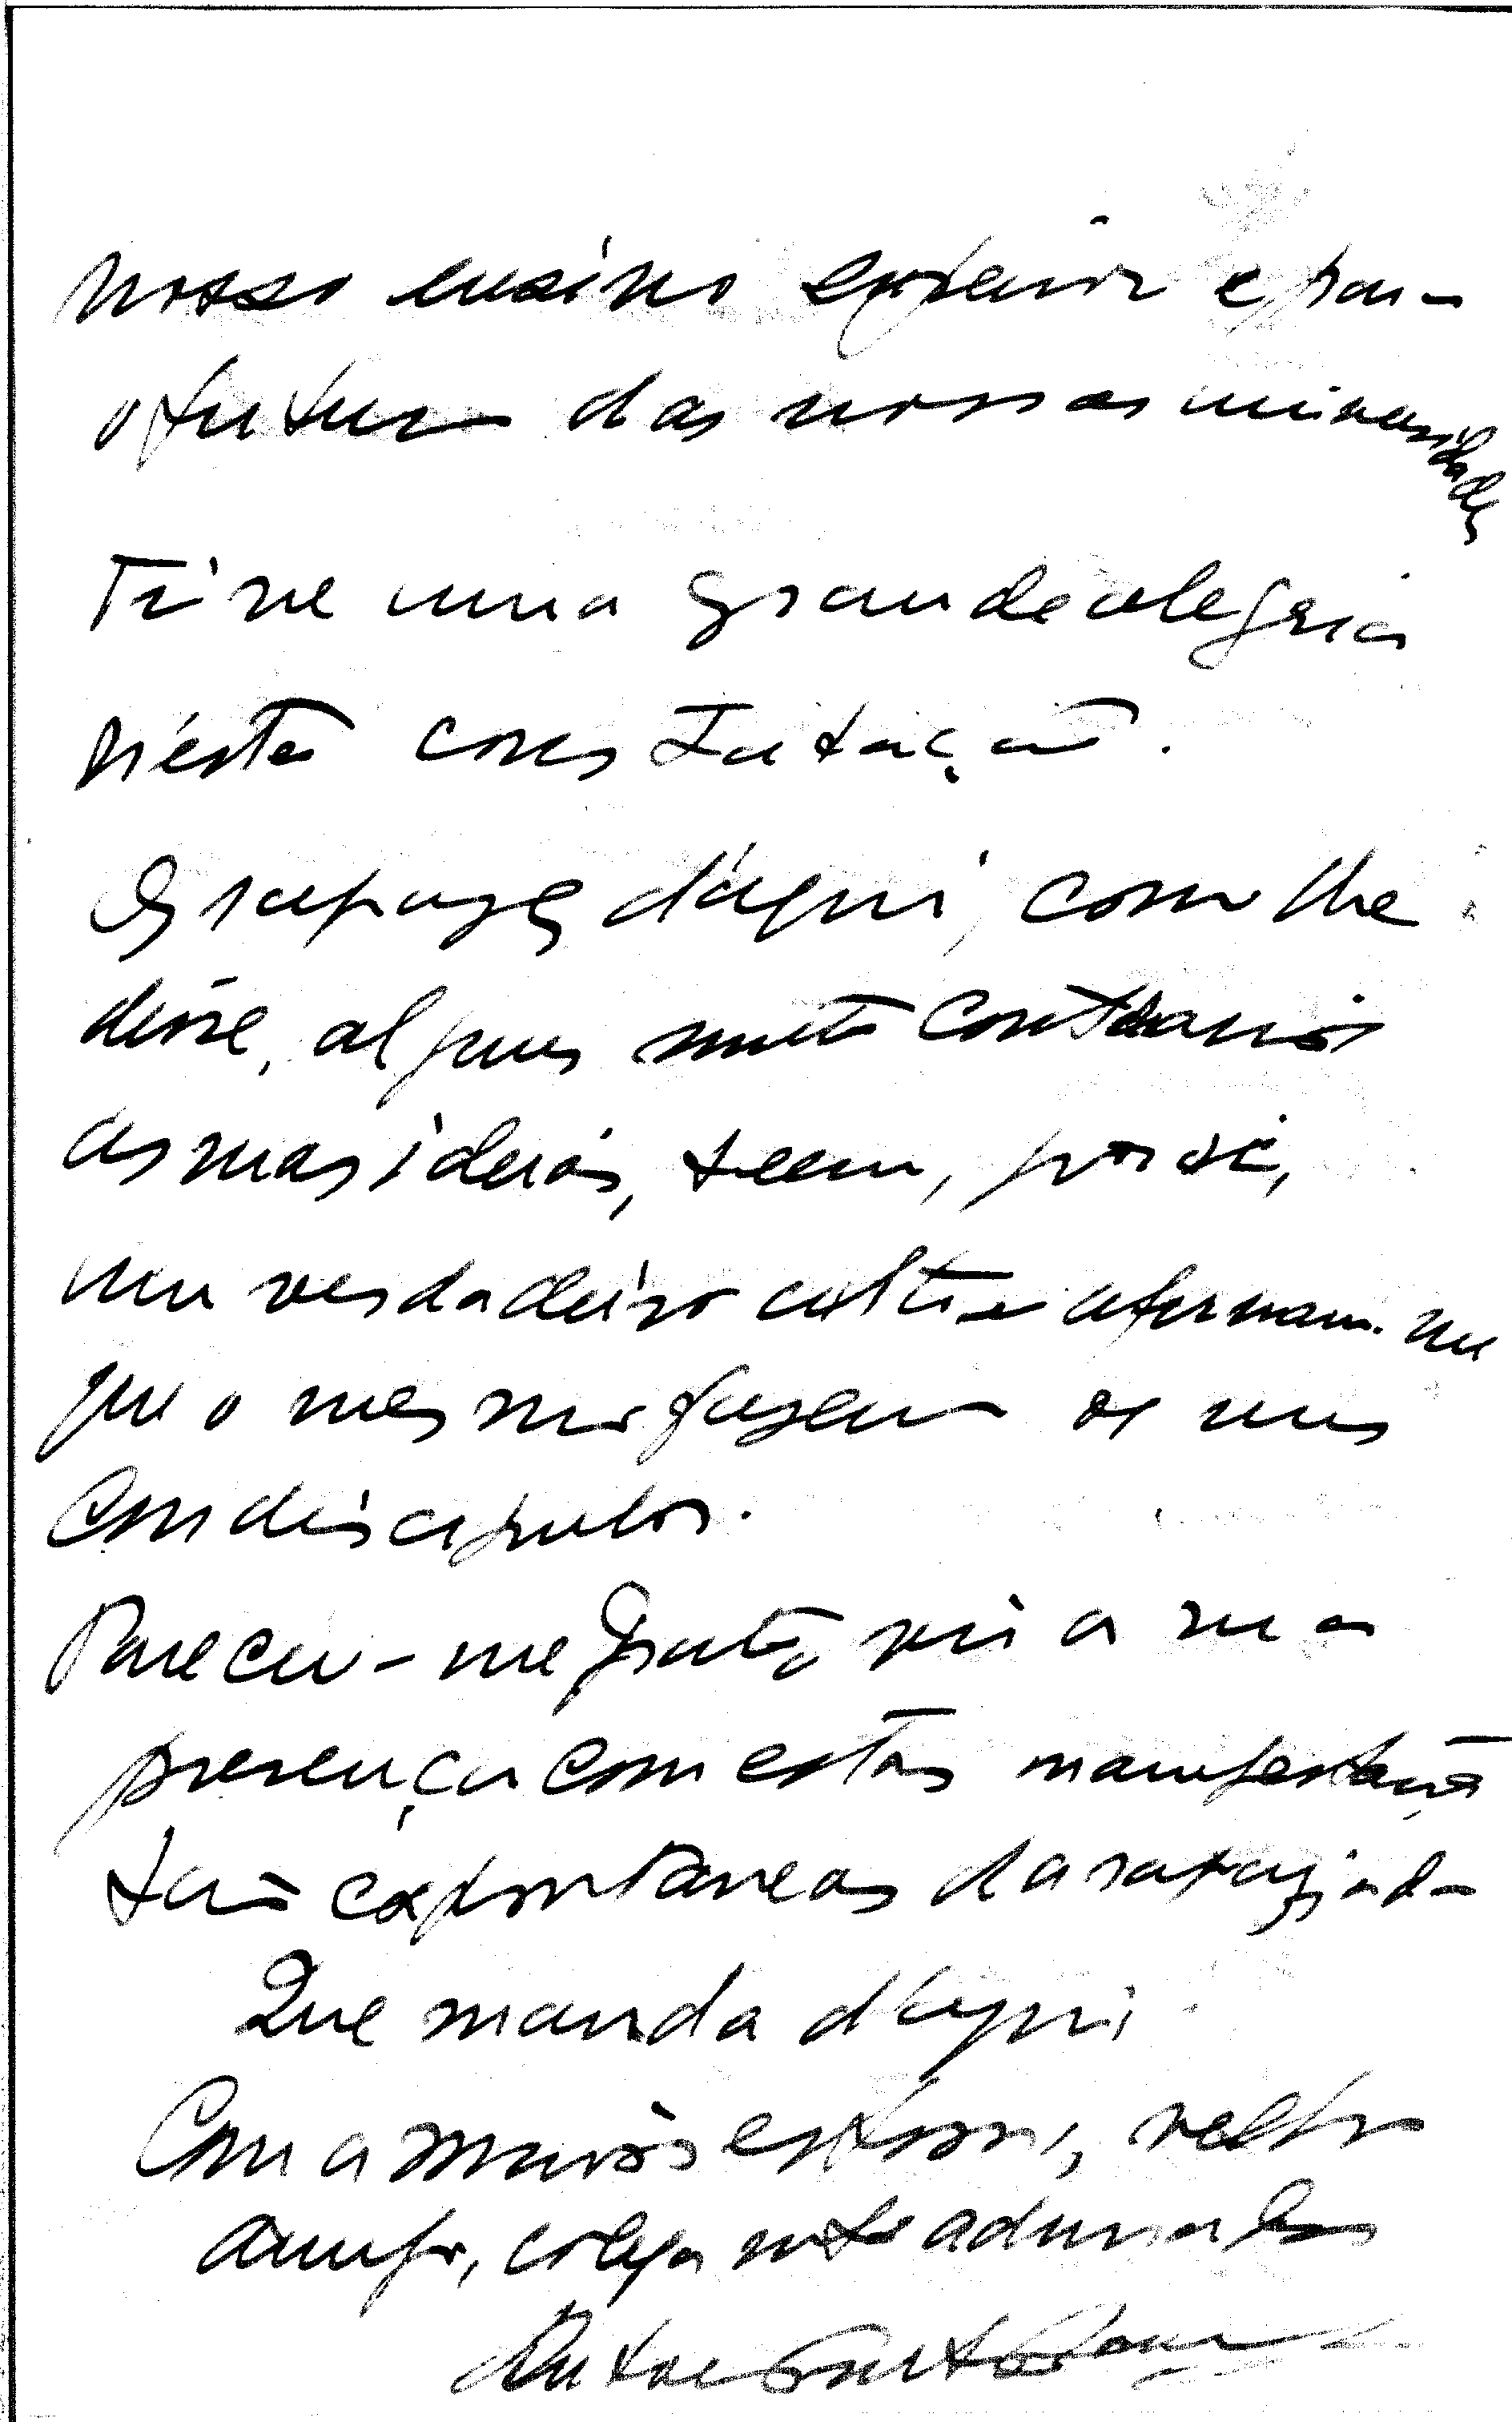 nosso ensino superior e para
o futuro das nossas universidades
Tive uma grande alegria
n'esta constatação.
Os rapazes d'aqui, como lhe
disse, alguns muito contrarios
ás suas ideias, teem, por si,
um verdadeiro culto e afirmam-me
que o mesmo fazem os seus
condiscipulos.
Pareceu-me grato, vir á sua
presença com estas manifestações
tão expontaneas da rapaziada
Que manda d'aqui
Com a maior estima, velho
amigo, colega mto admirador